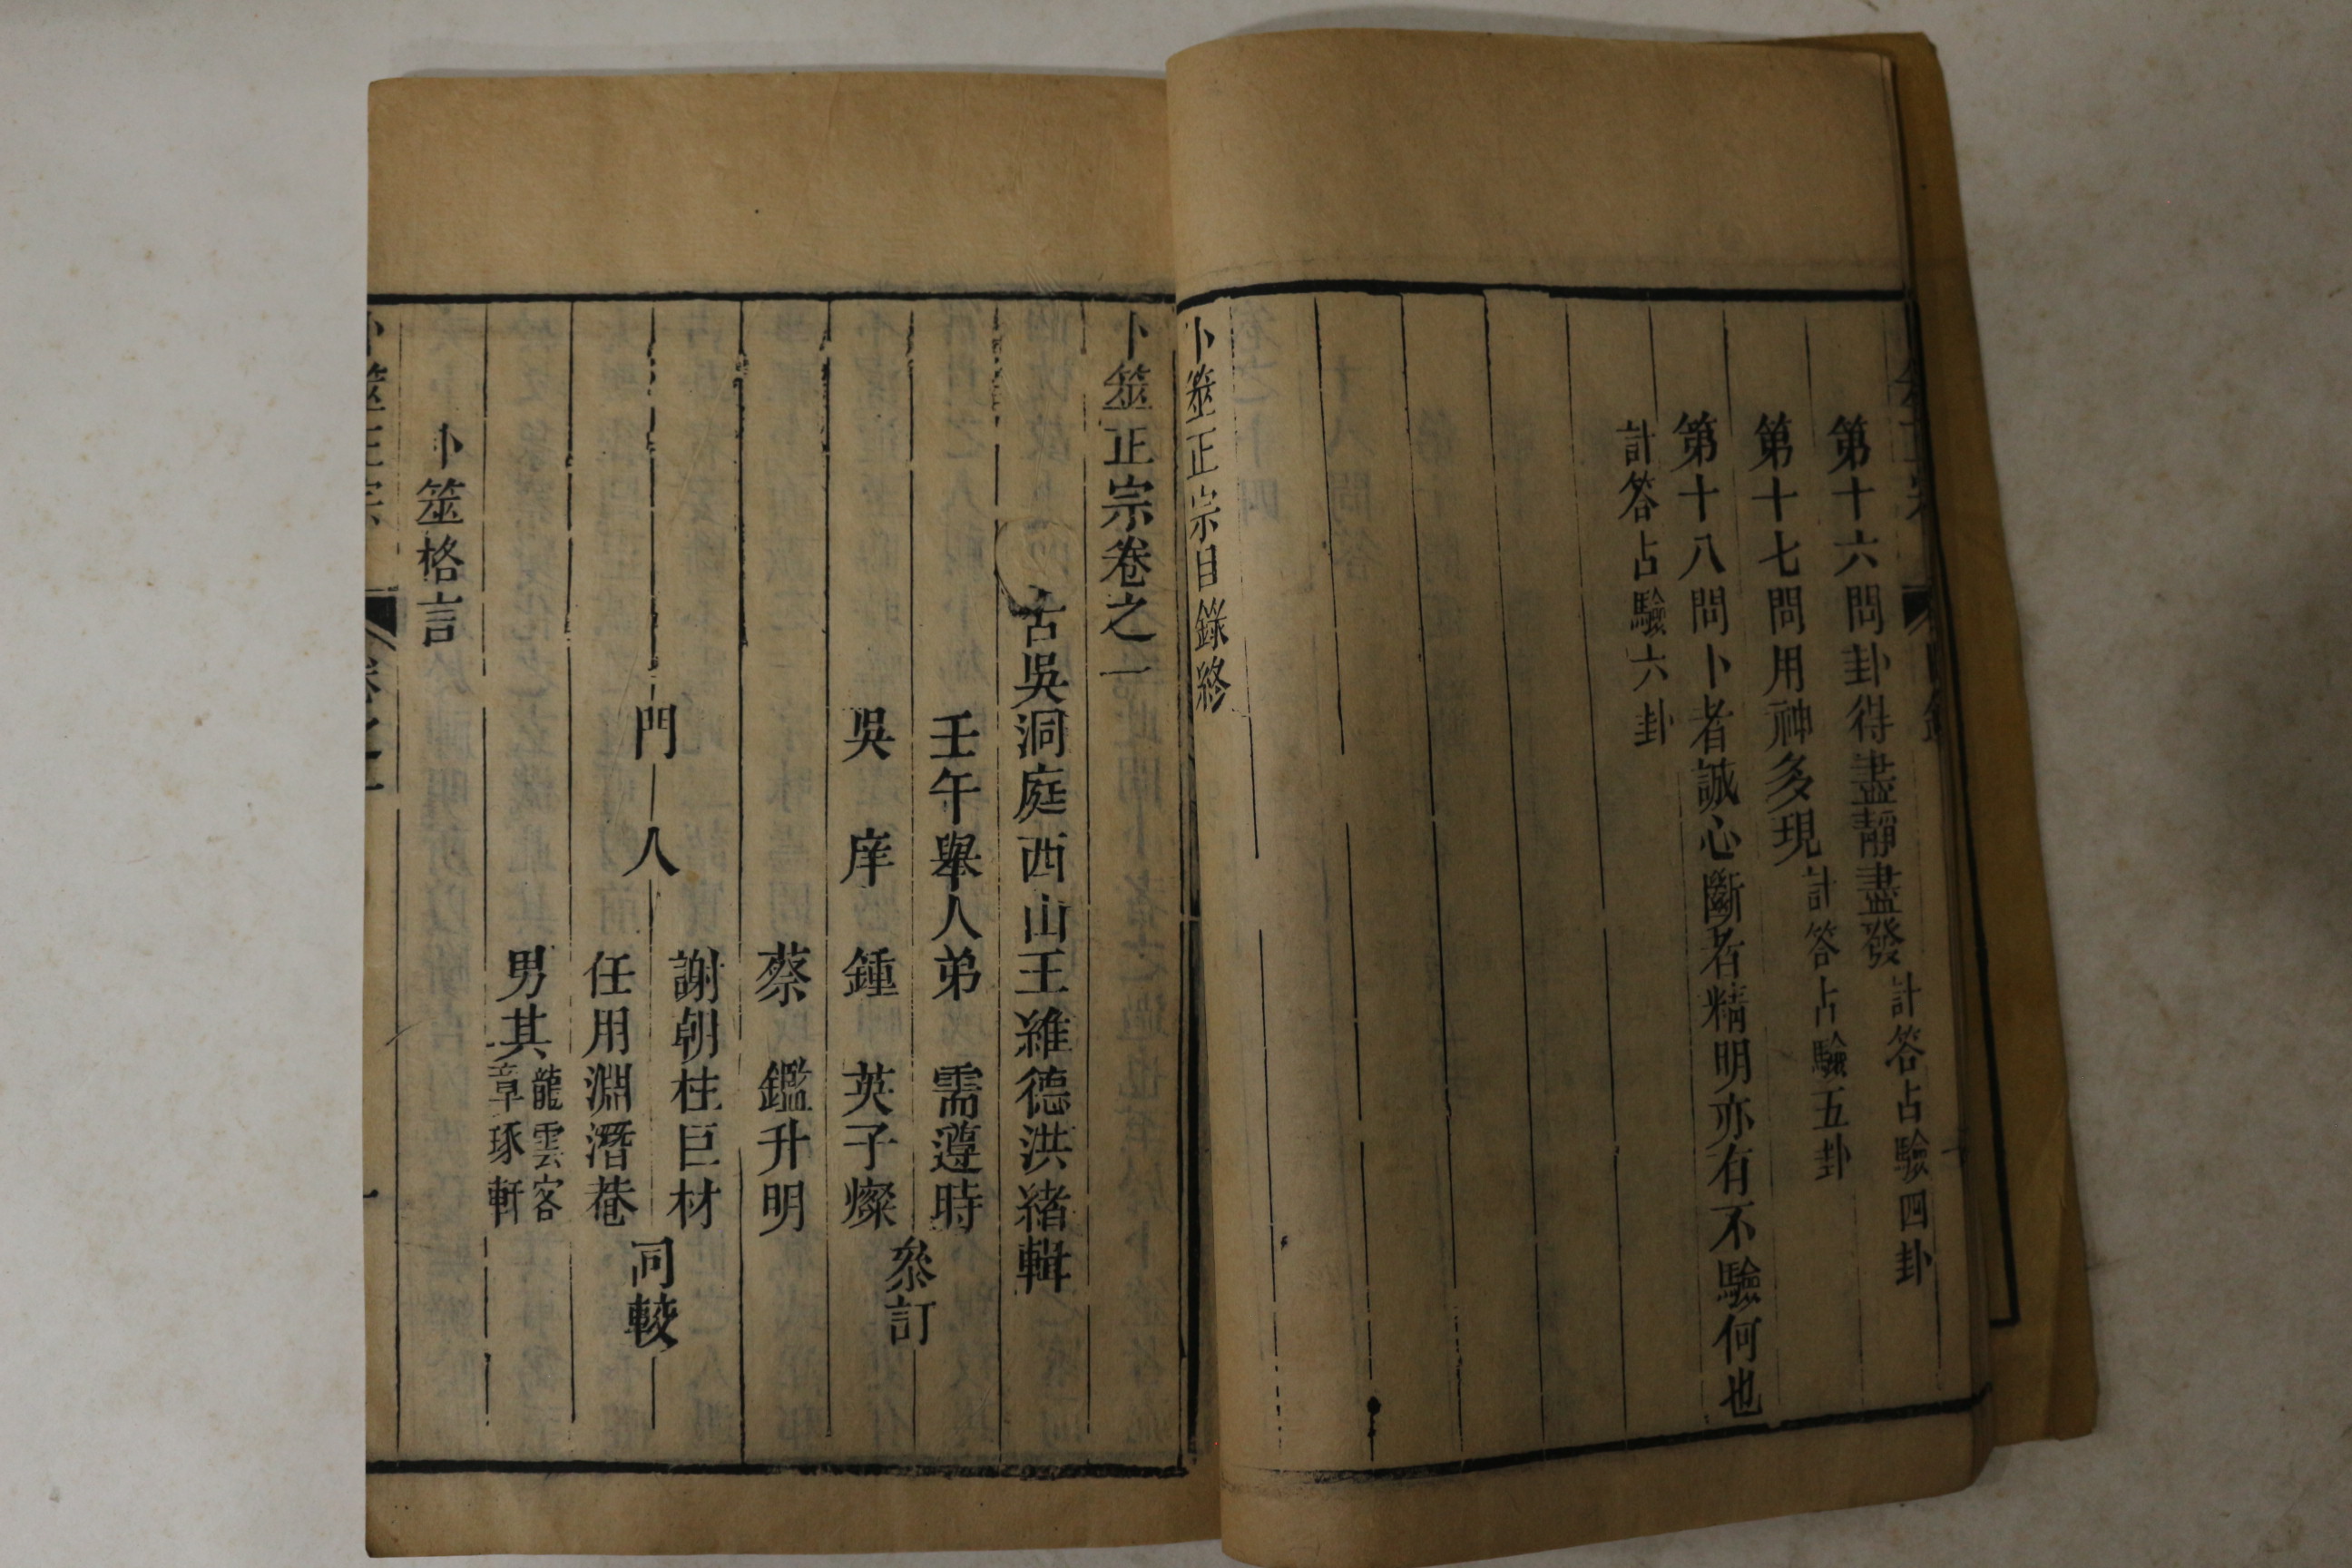 第十六問卦得盡靜盡發計答占驗四卦
第十七問用神多現計答占驗五卦
第十八問卜者誠心斷者精明亦有不驗何也
計答占驗六卦
卜筮正宗目錄終
卜筮正宗卷之一
古吳洞庭西山王維德洪緒輯
壬午舉人弟需遵時
吳庠鍾英子燦
參訂
蔡鑑升明
謝朝柱巨材
門人
同較
任用淵潛菴
男其龍雲客
章琢軒
卜筮格言
卜筮正宗
卷之一
一